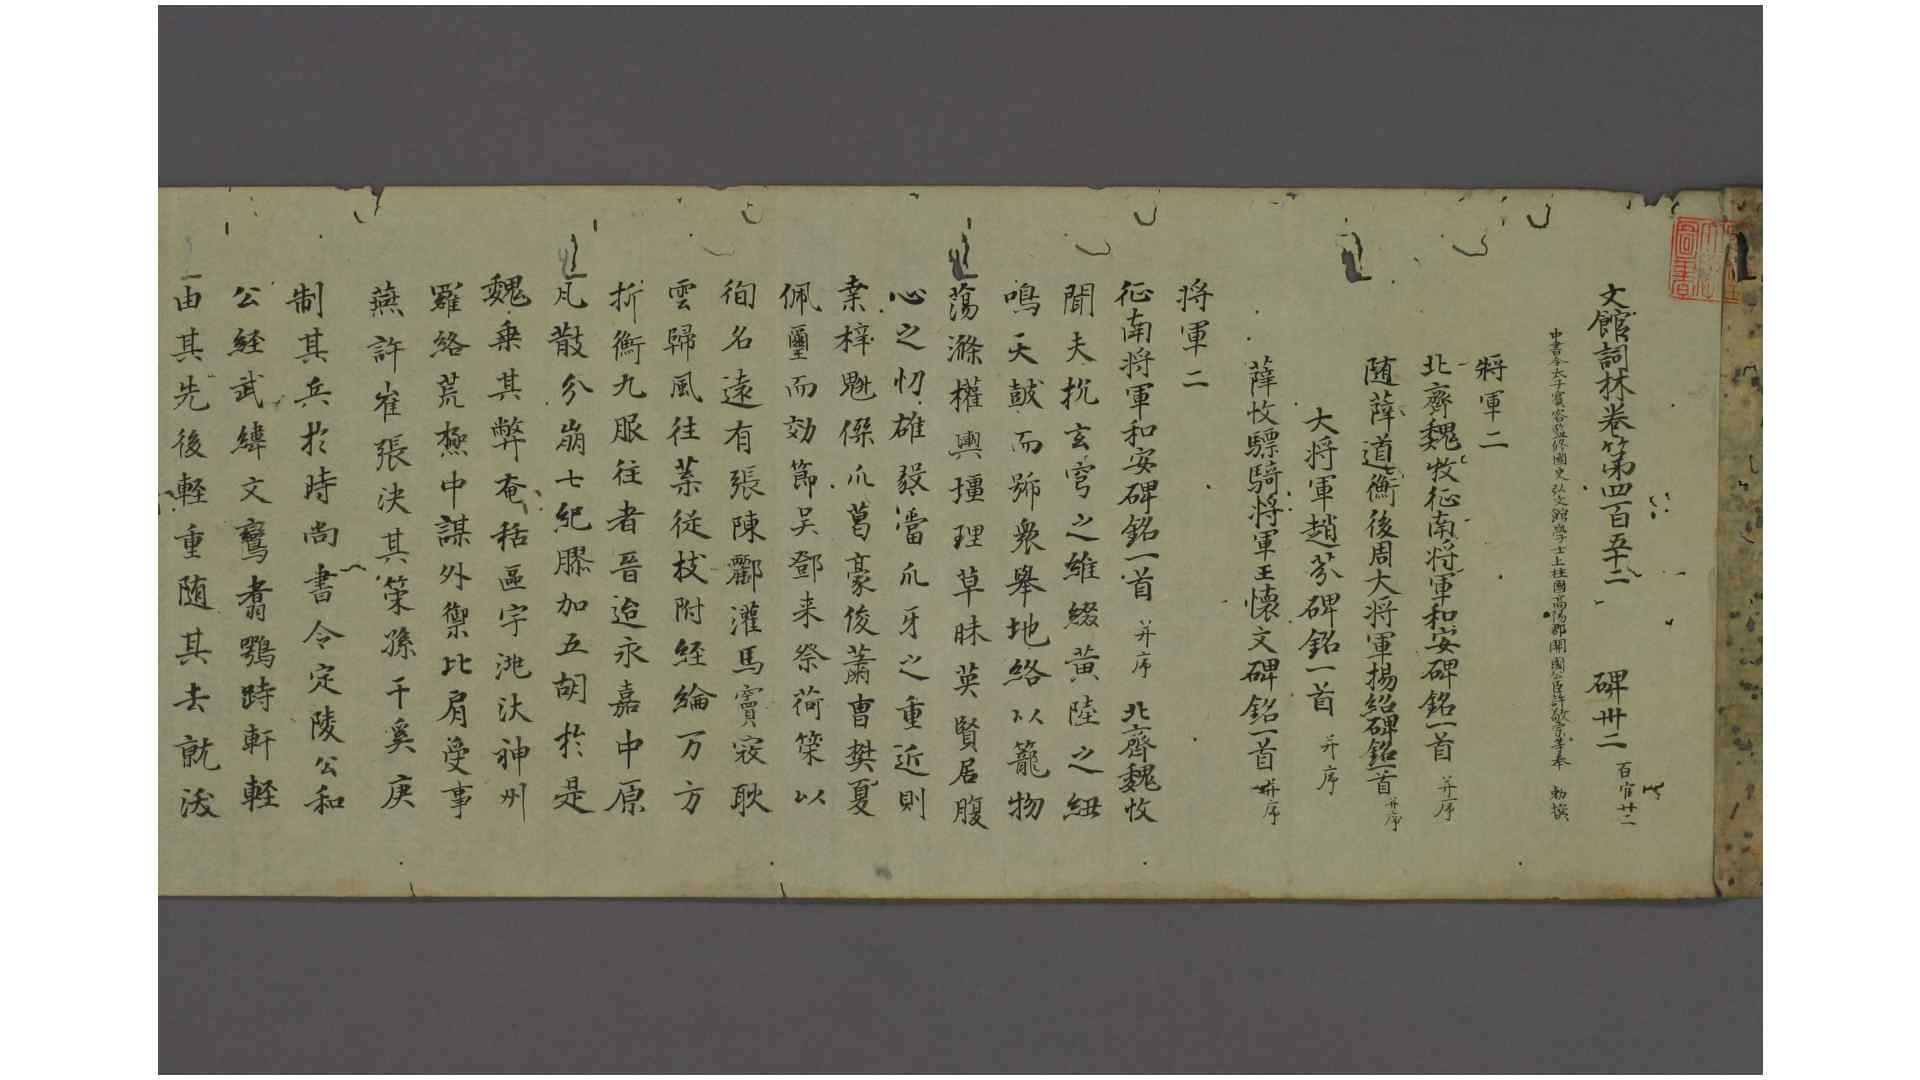 文館詞林卷第四百五十二 碑卅二 百官廿二
中書令太子賓客監修國史弘文館學士上柱國高陽郡開國公臣許敬宗等奉 勅撰
將軍二
北齊魏收征南將軍和安碑銘一首 并序
随薛道衡後周大將軍揚紹碑銘一首 并序
大將軍趙芬碑銘一首 并序
薛收驃騎將軍王懷文碑銘一首 并序
將軍二
征南將軍和安碑銘一首 并序 北齊魏收
聞夫抗玄穹之維綴黃陸之紐
鳴天鼓而号衆舉地絡以籠物
蕩滌權輿壃理草昧英賢居腹
心之切雄毅當爪牙之重近則
秉梓魁傑爪葛豪俊蕭曹樊夏
佩璽而効節吴鄧来祭荷策以
徇名遠有張陳酈灌馬竇寇耿
雲歸風往葉従枝附経綸万方
折衝九服往者晉迨永嘉中原
凡散分崩七紀膠加五胡於是
魏乗其弊奄括區宇洮汰神州
羅絡荒極中謀外禦比肩受事
燕許崔張決其策孫干奚庚
制其兵於時尚書令定陵公和
公経武緯文鸞翥鶚跱軒軽
由其先後軽重随其去就泼